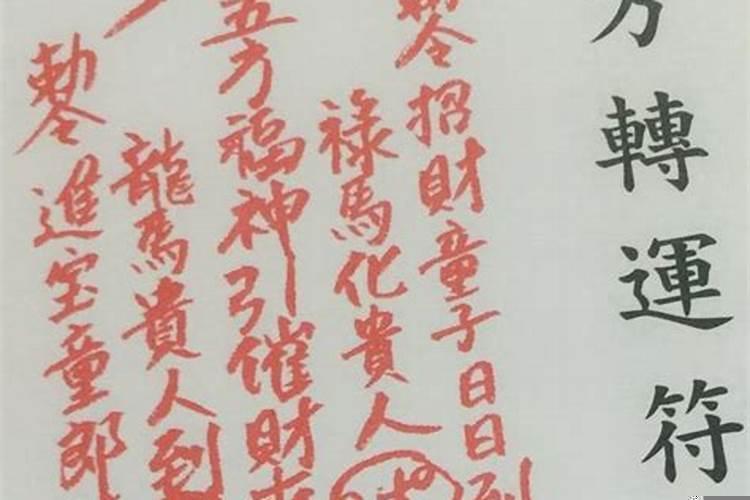 方轉運符
敕令招財童子日日到
祿馬化貴人
五方福神引催財
龍馬貴人到
敕令進宝童郎